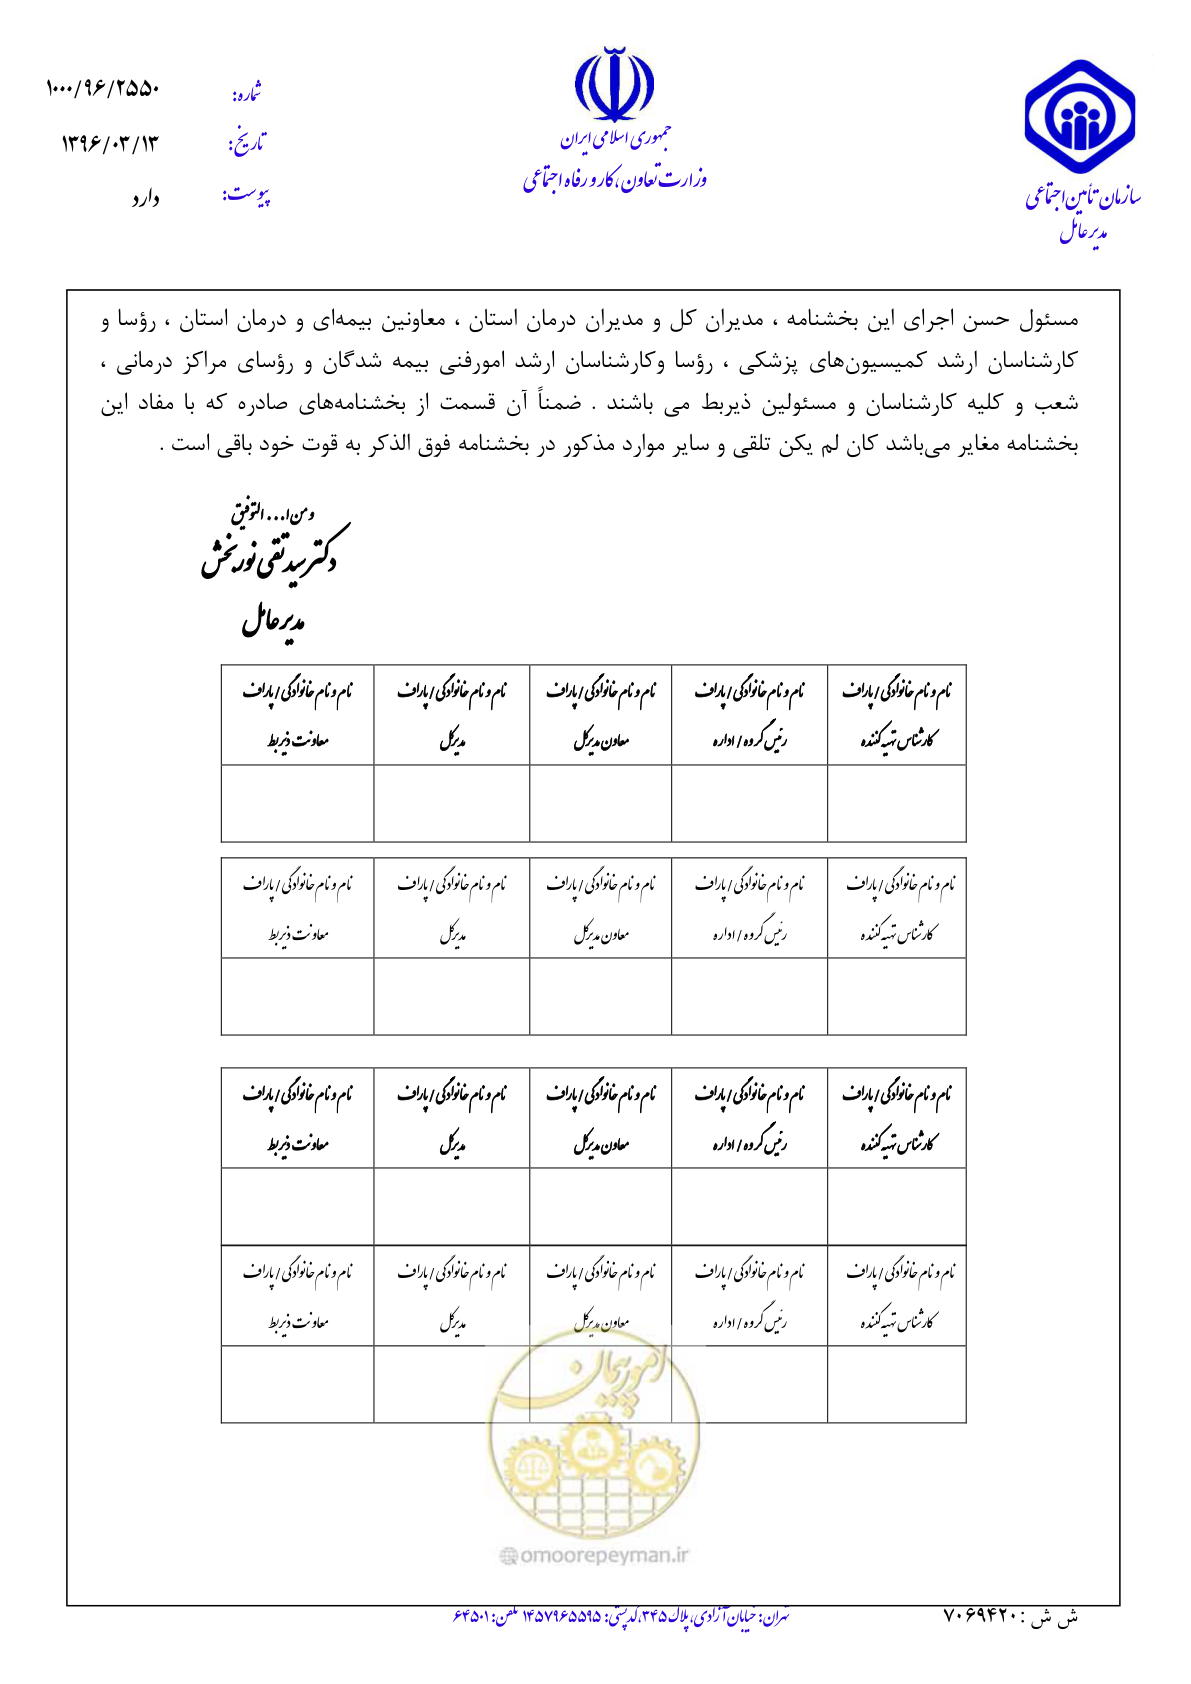 جمهوری اسلامی ایران
وزارت تعاون، کار و رفاه اجتماعی
سازمان تأمین اجتماعی
مدیرعامل
شماره: ۱۰۰۰/۹۶/۲۵۵۰
تاریخ: ۱۳۹۶/۰۳/۱۳
پیوست: دارد
مسئول حسن اجرای این بخشنامه ، مدیران کل و مدیران درمان استان ، معاونین بیمه‌ای و درمان استان ، رؤسا و
کارشناسان ارشد کمیسیون‌های پزشکی ، رؤسا وکارشناسان ارشد امورفنی بیمه شدگان و رؤسای مراکز درمانی ،
شعب و کلیه کارشناسان و مسئولین ذیربط می باشند . ضمناً آن قسمت از بخشنامه‌های صادره که با مفاد این
بخشنامه مغایر می‌باشد کان لم یکن تلقی و سایر موارد مذکور در بخشنامه فوق الذکر به قوت خود باقی است .
ومن ا... التوفیق
دکتر سید تقی نوربخش
مدیرعامل
نام و نام خانوادگی / پاراف کارشناس تهیه کننده
نام و نام خانوادگی / پاراف رئیس گروه / اداره
نام و نام خانوادگی / پاراف معاون مدیرکل
نام و نام خانوادگی / پاراف مدیرکل
نام و نام خانوادگی / پاراف معاونت ذیربط
نام و نام خانوادگی / پاراف کارشناس تهیه کننده
نام و نام خانوادگی / پاراف رئیس گروه / اداره
نام و نام خانوادگی / پاراف معاون مدیرکل
نام و نام خانوادگی / پاراف مدیرکل
نام و نام خانوادگی / پاراف معاونت ذیربط
نام و نام خانوادگی / پاراف کارشناس تهیه کننده
نام و نام خانوادگی / پاراف رئیس گروه / اداره
نام و نام خانوادگی / پاراف معاون مدیرکل
نام و نام خانوادگی / پاراف مدیرکل
نام و نام خانوادگی / پاراف معاونت ذیربط
نام و نام خانوادگی / پاراف کارشناس تهیه کننده
نام و نام خانوادگی / پاراف رئیس گروه / اداره
نام و نام خانوادگی / پاراف معاون مدیرکل
نام و نام خانوادگی / پاراف مدیرکل
نام و نام خانوادگی / پاراف معاونت ذیربط
امور پیمان
omoorepeyman.ir
ش ش : ۷۰۶۹۴۲۰
تهران: خیابان آزادی، پلاک ۳۴۵، کدپستی: ۱۴۵۷۹۶۵۵۹۵ تلفن: ۶۴۵۰۱